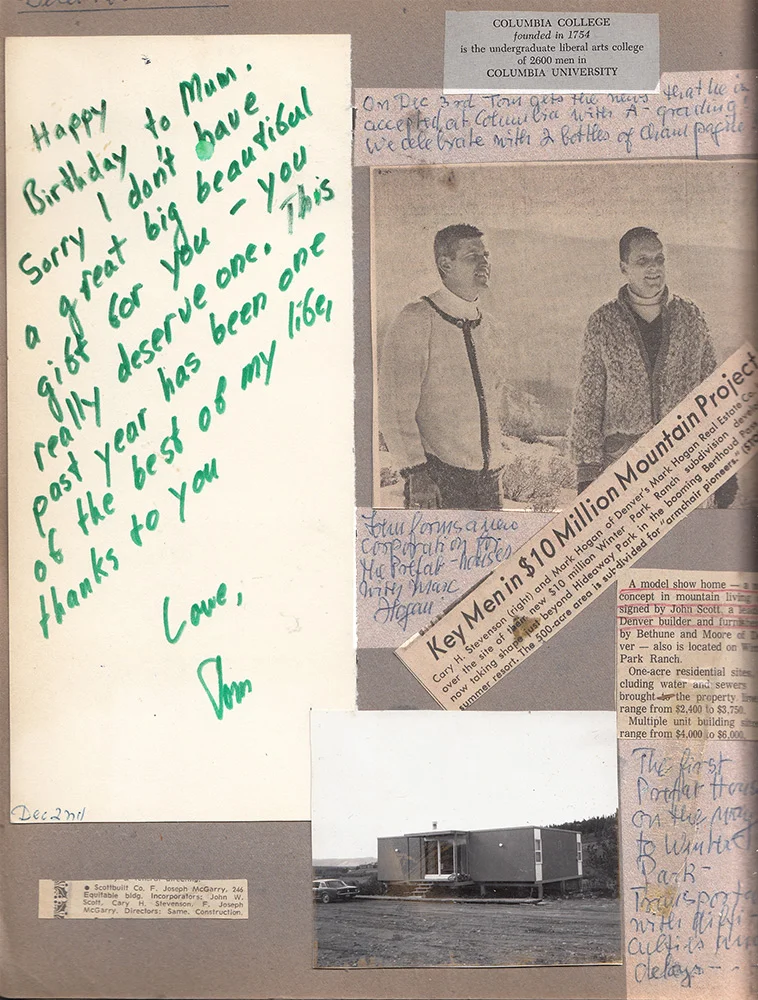 Happy
Birthday to Mum.
Sorry I don't have
a great big beautiful
gift for you - you
really deserve one. This
past year has been one
of the best of my life,
thanks to you
Love,
Tom
Dec 2nd
COLUMBIA COLLEGE
founded in 1754
is the undergraduate liberal arts college
of 2600 men in
COLUMBIA UNIVERSITY
On Dec 3rd Tom gets the news that he is
accepted at Columbia with A-grading!
We celebrate with 2 bottles of Champagne
Key Men in $10 Million Mountain Project
Cary H. Stevenson (right) and Mark Hogan of Denver's Mark Hogan Real Estate Co.
over the site of their new $10 million Winter Park Ranch subdivision
now taking shape just beyond Hideaway Park in the booming Berthoud Pass
summer resort. The 500-acre area is subdivided for "armchair pioneers."
forms a new
corporation for
the Prefab-houses
with Marc
Hogan
A model show home — a
concept in mountain living
signed by John Scott, a
Denver builder and
by Bethune and Moore of
ver — also is located on
Park Ranch.
One-acre residential sites,
cluding water and sewers
brought to the property
range from $2,400 to $3,750.
Multiple unit building
range from $4,000 to $6,000.
The first
Prefab House
on the way
to Winter
Park-
with diffi-
culties
delays--
● Scottbuilt Co. F. Joseph McGarry, 246
Equitable bldg. Incorporators: John W.
Scott, Cary H. Stevenson, F. Joseph
McGarry. Directors: Same. Construction.